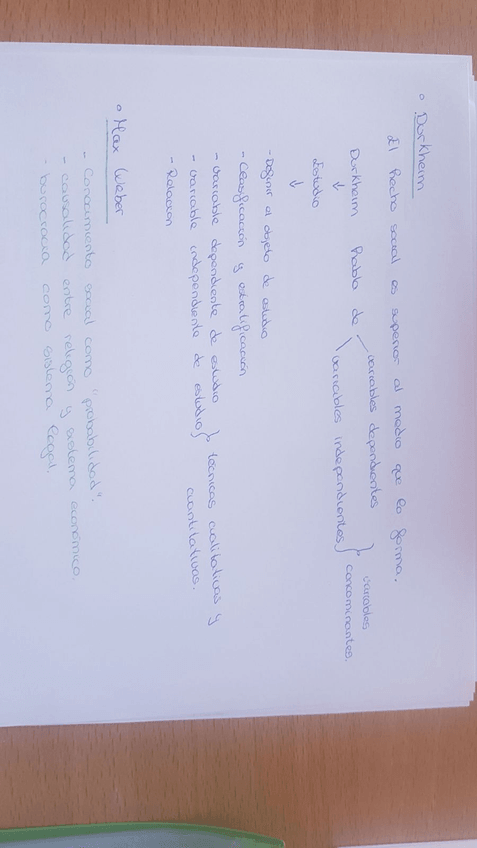 ° Durkheim
El hecho social es superior al medio que lo forma.
Durkheim habla de variables dependientes
variables independientes } variables concominantes.
↓
Estudio
↓
- Definir al objeto de estudio
- Clasificación y estratificación
- Variable dependiente de estudio
- Variable independiente de estudio } técnicas cualitativas y cuantitativas.
- Relación
° Max Weber
- Conocimiento social como "probabilidad".
- causalidad entre religión y sistema económico.
- burocracia como sistema legal.